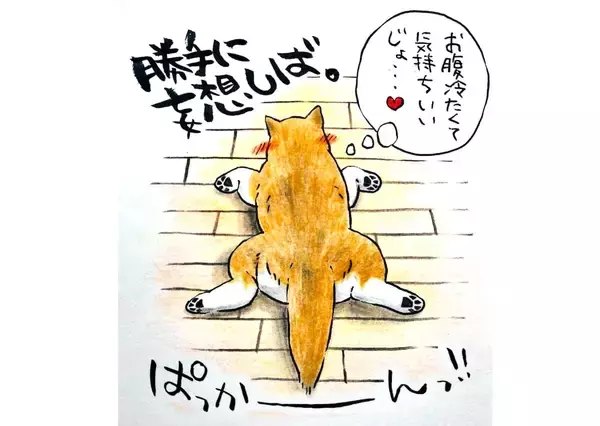 勝手に
妄想しば。
お腹冷たくて
気持ちいい
じょ…
ぱっかーんっ!!